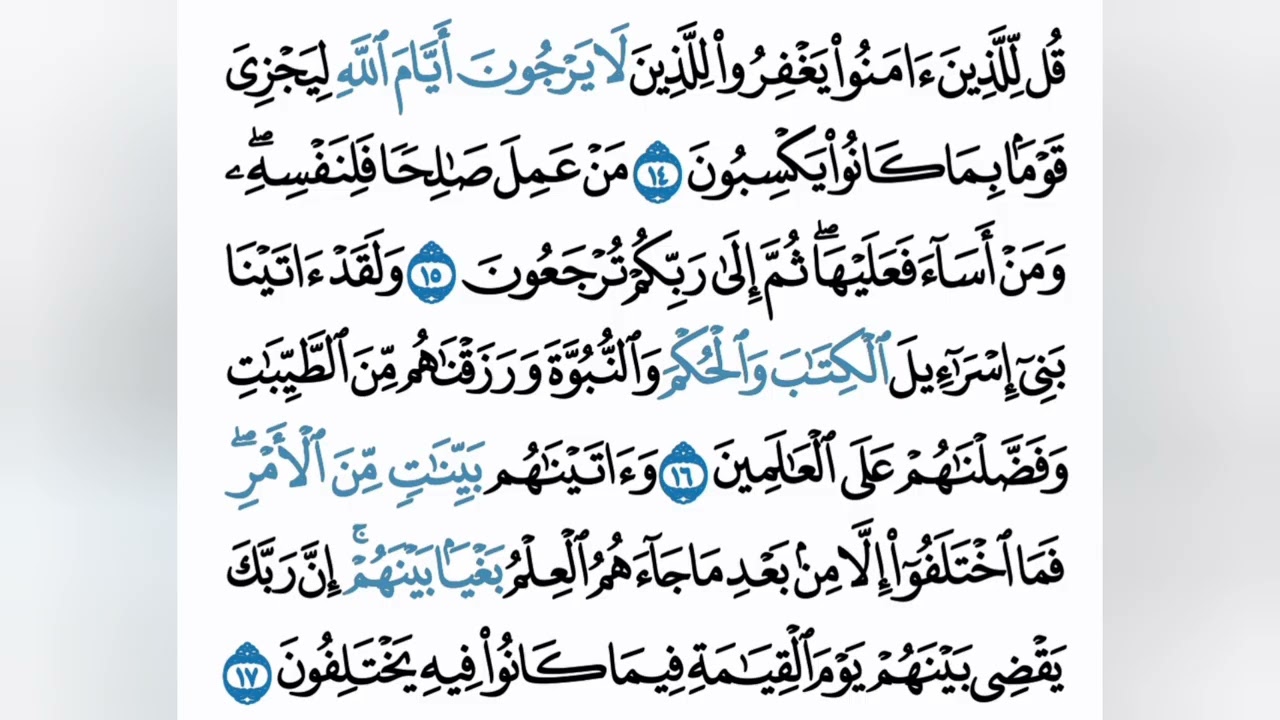 قُل لِّلَّذِينَ ءَامَنُوا۟ يَغْفِرُوا۟ لِلَّذِينَ لَا يَرْجُونَ أَيَّامَ ٱللَّهِ لِيَجْزِىَ
قَوْمًۢا بِمَا كَانُوا۟ يَكْسِبُونَ ١٤ مَنْ عَمِلَ صَـٰلِحًا فَلِنَفْسِهِۦۖ
وَمَنْ أَسَآءَ فَعَلَيْهَاۖ ثُمَّ إِلَىٰ رَبِّكُمْ تُرْجَعُونَ ١٥ وَلَقَدْ ءَاتَيْنَا
بَنِىٓ إِسْرَٰٓءِيلَ ٱلْكِتَـٰبَ وَٱلْحُكْمَ وَٱلنُّبُوَّةَ وَرَزَقْنَـٰهُم مِّنَ ٱلطَّيِّبَـٰتِ
وَفَضَّلْنَـٰهُمْ عَلَى ٱلْعَـٰلَمِينَ ١٦ وَءَاتَيْنَـٰهُم بَيِّنَـٰتٍ مِّنَ ٱلْأَمْرِۖ
فَمَا ٱخْتَلَفُوٓا۟ إِلَّا مِنۢ بَعْدِ مَا جَآءَهُمُ ٱلْعِلْمُ بَغْيًۢا بَيْنَهُمْۚ إِنَّ رَبَّكَ
يَقْضِى بَيْنَهُمْ يَوْمَ ٱلْقِيَـٰمَةِ فِيمَا كَانُوا۟ فِيهِ يَخْتَلِفُونَ ١٧